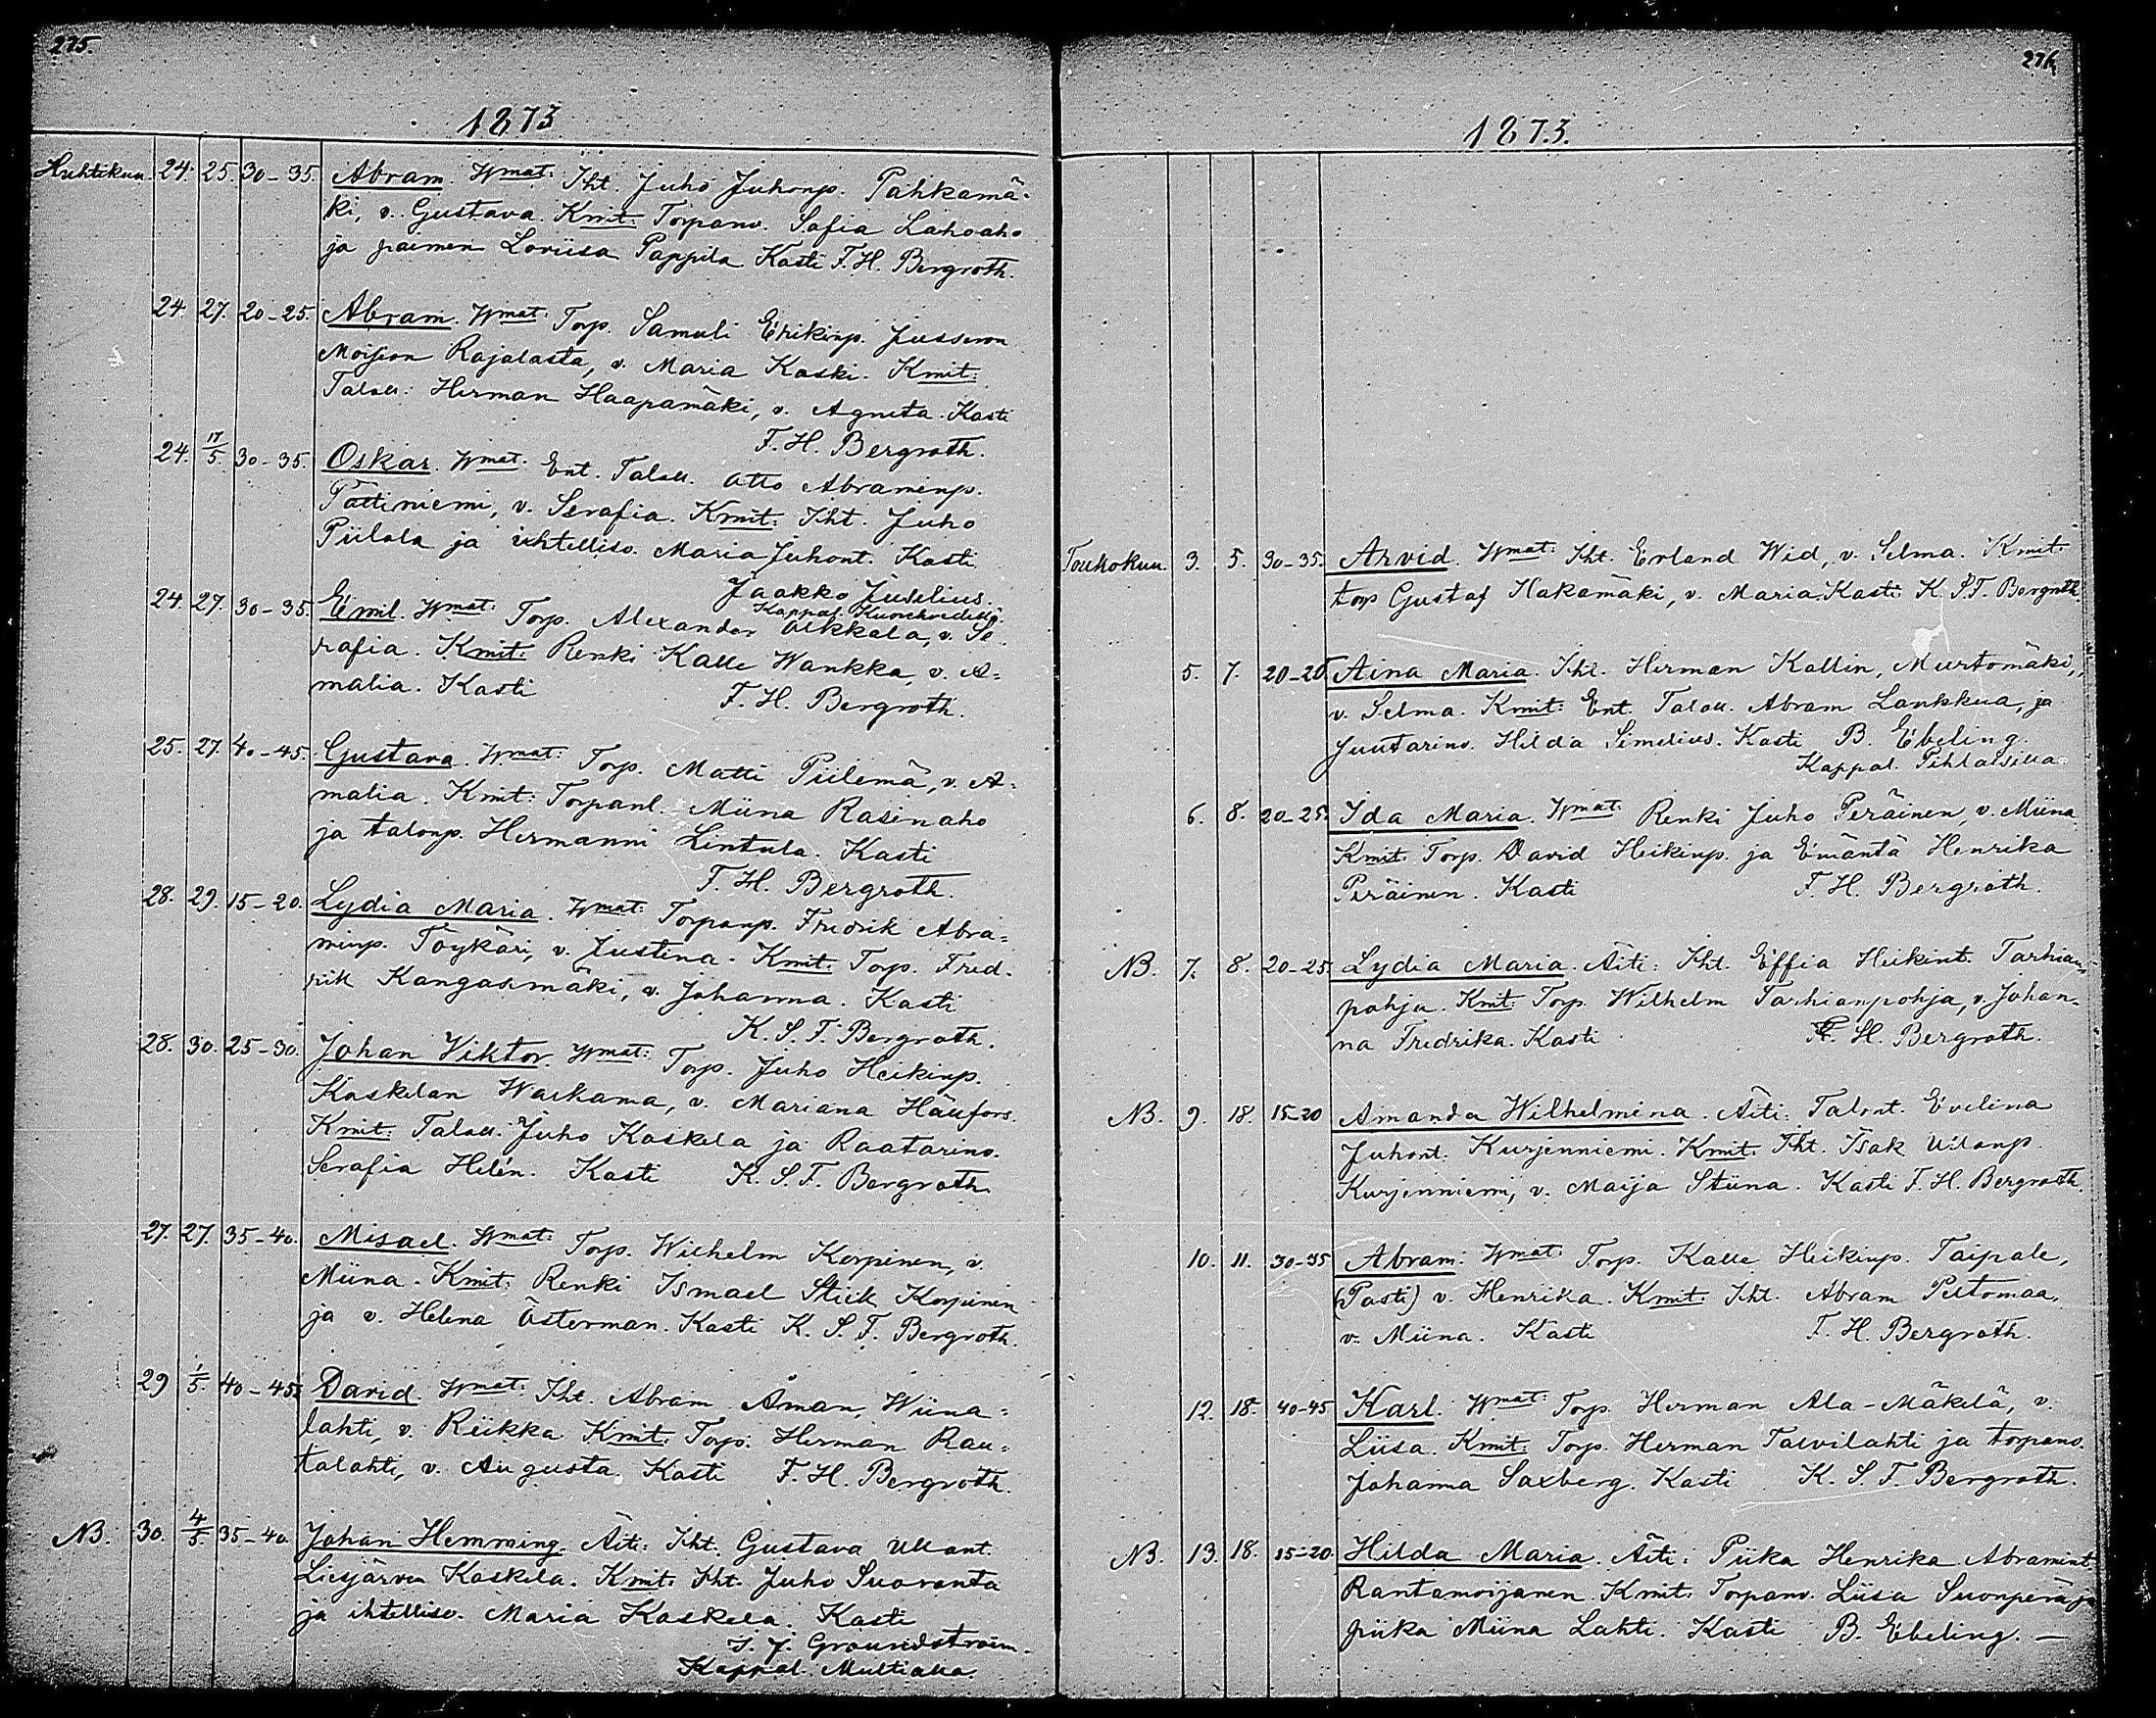 275.
1873
Huhtikuu. 24. 25. 30-35. Abram. Wmat: Iht. Juho Juhonp. Pahkamä-
ki, v. Gustava. Kmit: Torpanv. Safia Lahoaho
ja paimen Loviisa Pappila Kasti F. H. Bergroth.
24. 27. 20-25. Abram. Wmat: Torp. Samuli Erikinp. Jussson
Moision Rajalasta, v. Maria Kaski. Kmit:
Taloll: Herman Haapamäki, v. Agneta. Kasti
F. H. Bergroth.
24. 17/5. 30-35. Oskar. Wmat. Ent. Taloll. Otto Abraminp.
Pättiniemi, v. Serafia. Kmit: Iht. Juho
Piilola ja ihtelliso. Maria Juhont. Kasti
Jaakko Juselius.
Kappal. Kuorehvedellä.
24. 27. 30-35. Emil. Wmat: Torp. Alexander Ulkkala, v. Se-
rafia. Kmit: Renki Kalle Wankka, v. A=
malia. Kasti F. H. Bergroth.
25. 27. 40-45. Gustava. Wmat: Torp. Matti Piilemä, v. A=
malia. Kmit: Torpanl. Miina Rasinaho
ja talonp. Hermanni Lintula. Kasti
F. H. Bergroth.
28. 29. 15-20. Lydia Maria. Wmat: Torpanp. Fredrik Abra=
minp. Töykäri, v. Justina. Kmit: Torp. Fred-
rik Kangasmäki, v. Johanna. Kasti
K. S. F. Bergroth.
28. 30. 25-30. Johan Viktor. Wmat: Torp. Juho Heikinp.
Kaskelan Warkama, v. Mariana Häufors.
Kmit: Taloll. Juho Kaskela ja Raatarinv.
Serafia Helén. Kasti K. S. F. Bergroth.
27. 27. 35-40. Misael. Wmat: Torp. Wilhelm Korpinen, v.
Miina. Kmit: Renki Ismael Stick Korpinen
ja v. Helena Österman. Kasti K. S. F. Bergroth.
29 1/5. 40-45. David. Wmat: Iht. Abram Åman, Wiina=
lahti, v. Riikka Kmit: Torp. Herman Rau=
talahti, v. Augusta. Kasti F. H. Bergroth.
NB. 30. 4/5. 35-40. Johan Hemming. Äiti: Iht. Gustava Ullant.
Liesjärven Kaskela. Kmit: Iht. Juho Suoranta
ja ihtelliso. Maria Kaskela. Kasti
J. J. Groundstroem.
Kappal. Multialla.
276.
1873.
Toukokuu. 3. 5. 30-35. Arvid. Wmat: Iht. Erland Wid, v. Selma. Kmit:
torp Gustaf Hakamäki, v. Maria. Kasti K. S. F. Bergroth.
5. 7. 20-25 Aina Maria. Iht. Herman Kallin, Murtomäki,
v. Selma. Kmit: Ent. Taloll. Abram Laukkua, ja
Juutarinv. Hilda Simelius. Kasti B. Ebeling.
Kappal. Pihlajavilla
6. 8. 20-25. Ida Maria. Wmat: Renki Juho Peräinen, v. Miina
Kmit. Torp. David Heikinp. ja Emäntä Henrika
Peräinen. Kasti F. H. Bergroth.
NB. 7. 8. 20-25. Lydia Maria. Äiti: Iht. Effia Heikint. Tarhian-
pohja. Kmit: Torp. Wilhelm Tarhianpohja, v. Johan-
na Fredrika. Kasti F. H. Bergroth.
NB. 9. 18. 15-20 Amanda Wilhelmina. Äiti: Talont. Evelina
Juhont. Kurjenniemi. Kmit: Iht. Isak Ullanp.
Kurjenniemi, v. Maija Stiina. Kasti F. H. Bergroth.
10. 11. 30-35 Abram. Wmat: Torp. Kalle Heikinp. Taipale,
(Pasti) v. Henrika. Kmit: Iht. Abram Peltomaa,
v. Miina. Kasti F. H. Bergroth.
12. 18. 40-45 Karl. Wmat: Torp. Herman Ala-Mäkelä, v.
Liisa. Kmit: Torp. Herman Talvilahti ja torpanv.
Johanna Saxberg. Kasti K. S. F. Bergroth.
NB. 13. 18. 15-20. Hilda Maria. Äiti: Piika Henrika Abramint
Rantamoijanen. Kmit: Torpanv. Liisa Suonperä ja
piika Miina Lahti. Kasti B. Ebeling. —